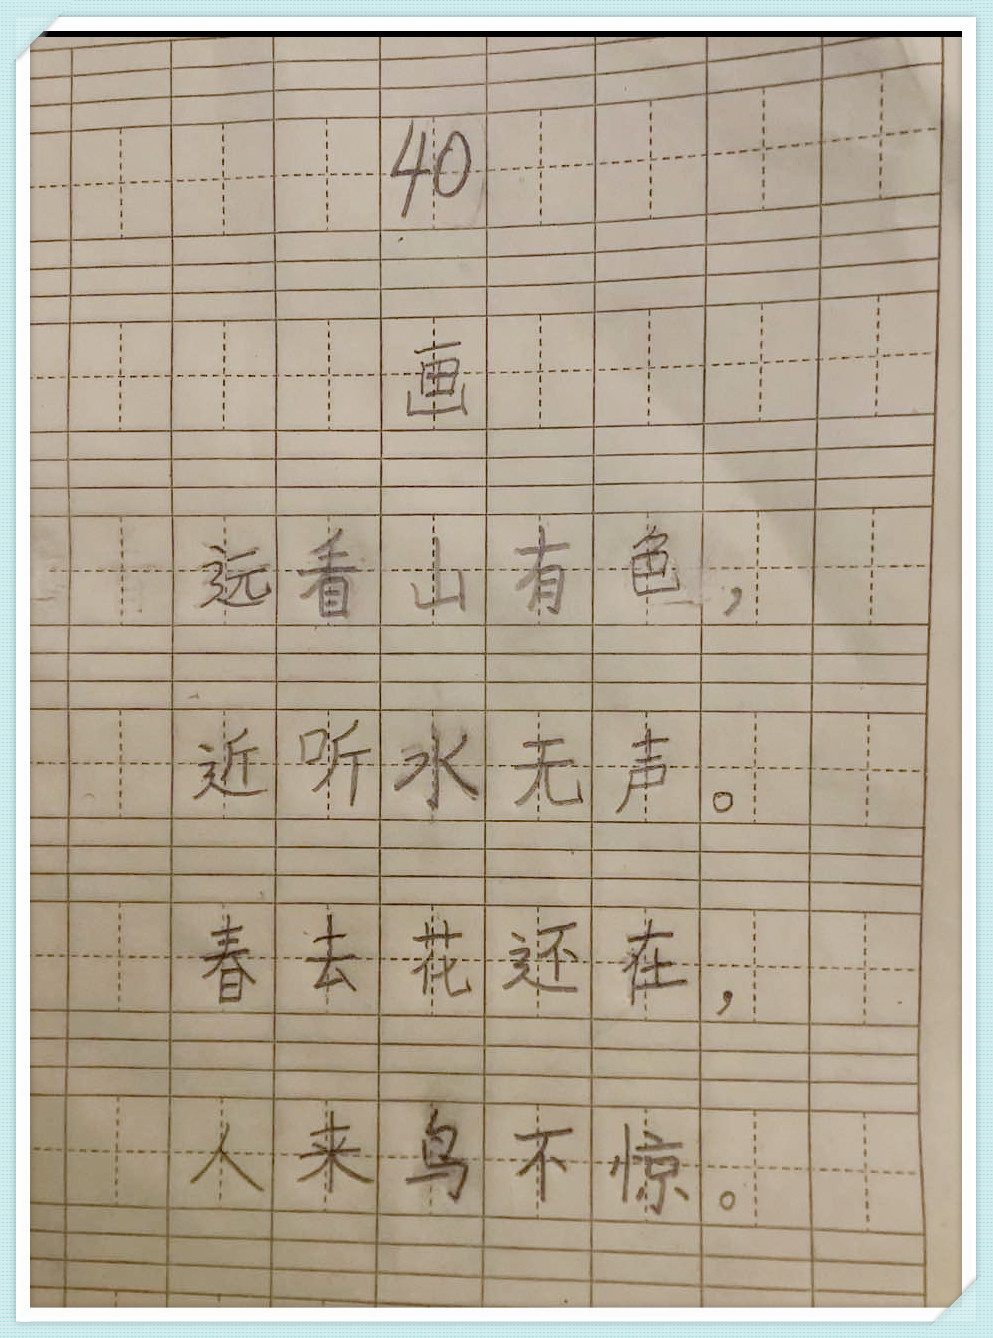 40
画
远看山有色，
近听水无声。
春去花还在，
人来鸟不惊。